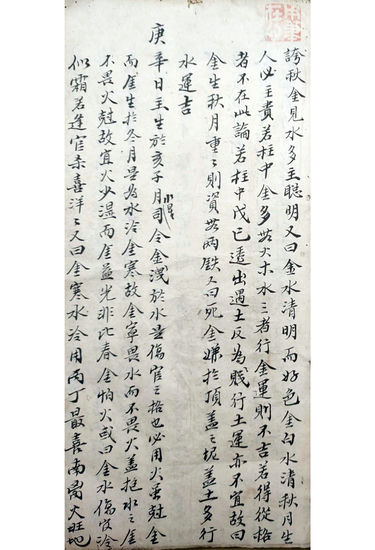 誇秋金見水多主聰明又曰金水清明而好色金白水清秋月生
人必主貴若柱中金多無火木水三者行金運則不吉若得從格
者不在此論若柱中戊己透出遇土反為賤行土運亦不宜故曰
金生秋月重々則資無兩鉄又曰死金嫌於頂蓋之坭蓋土多行
水運吉
庚辛日主生於亥子月司令金洩於水是傷官之格也必用火尅金
而金生於冬月是為水冷金寒故金寧畏水而不畏火蓋水之金
不畏火尅故宜火少濕而金益光非比春金怕火或曰金水傷官冷
似霜若逢官杀喜洋々又曰金寒水冷用丙丁最喜南离火旺地